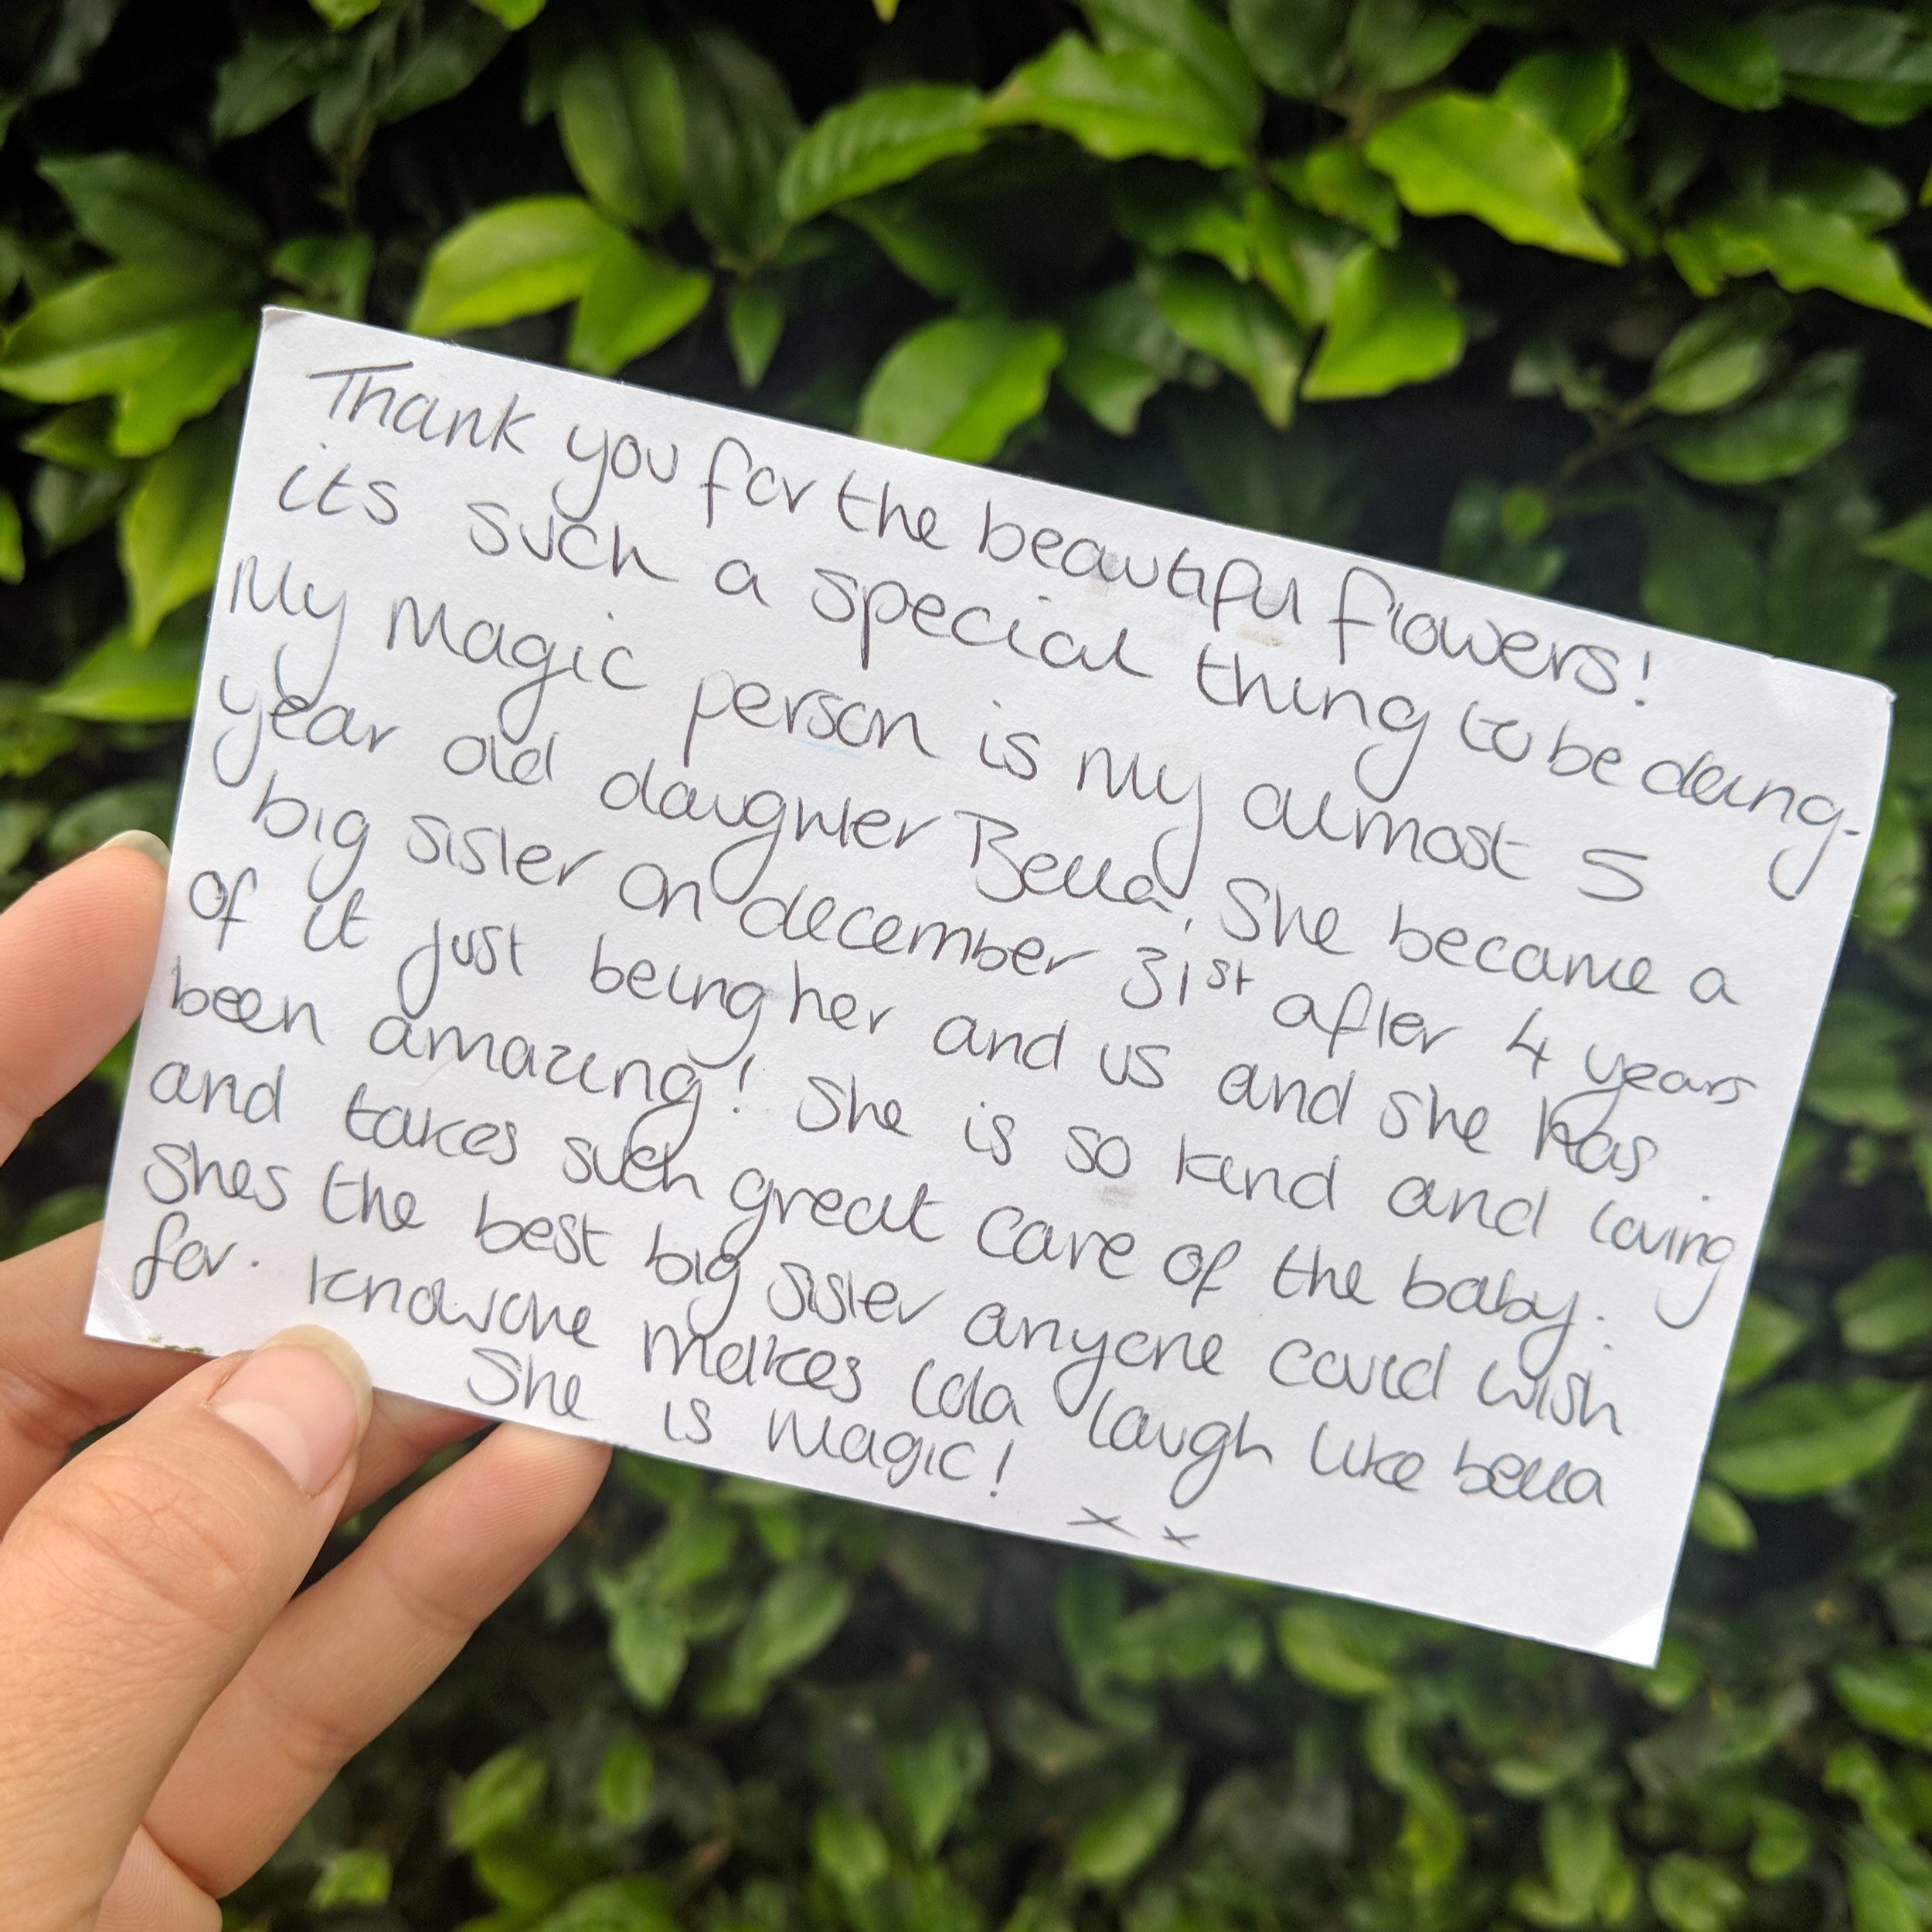 Thank you for the beautiful flowers!
its such a special thing to be doing.
My magic person is my almost 5
year old daughter Bella. She became a
big sister on december 31st after 4 years
of it just being her and us and she has
been amazing! She is so kind and loving
and takes such great care of the baby.
Shes the best big sister anyone could wish
for. Knowone makes Lola laugh like bella
She is magic!
x x